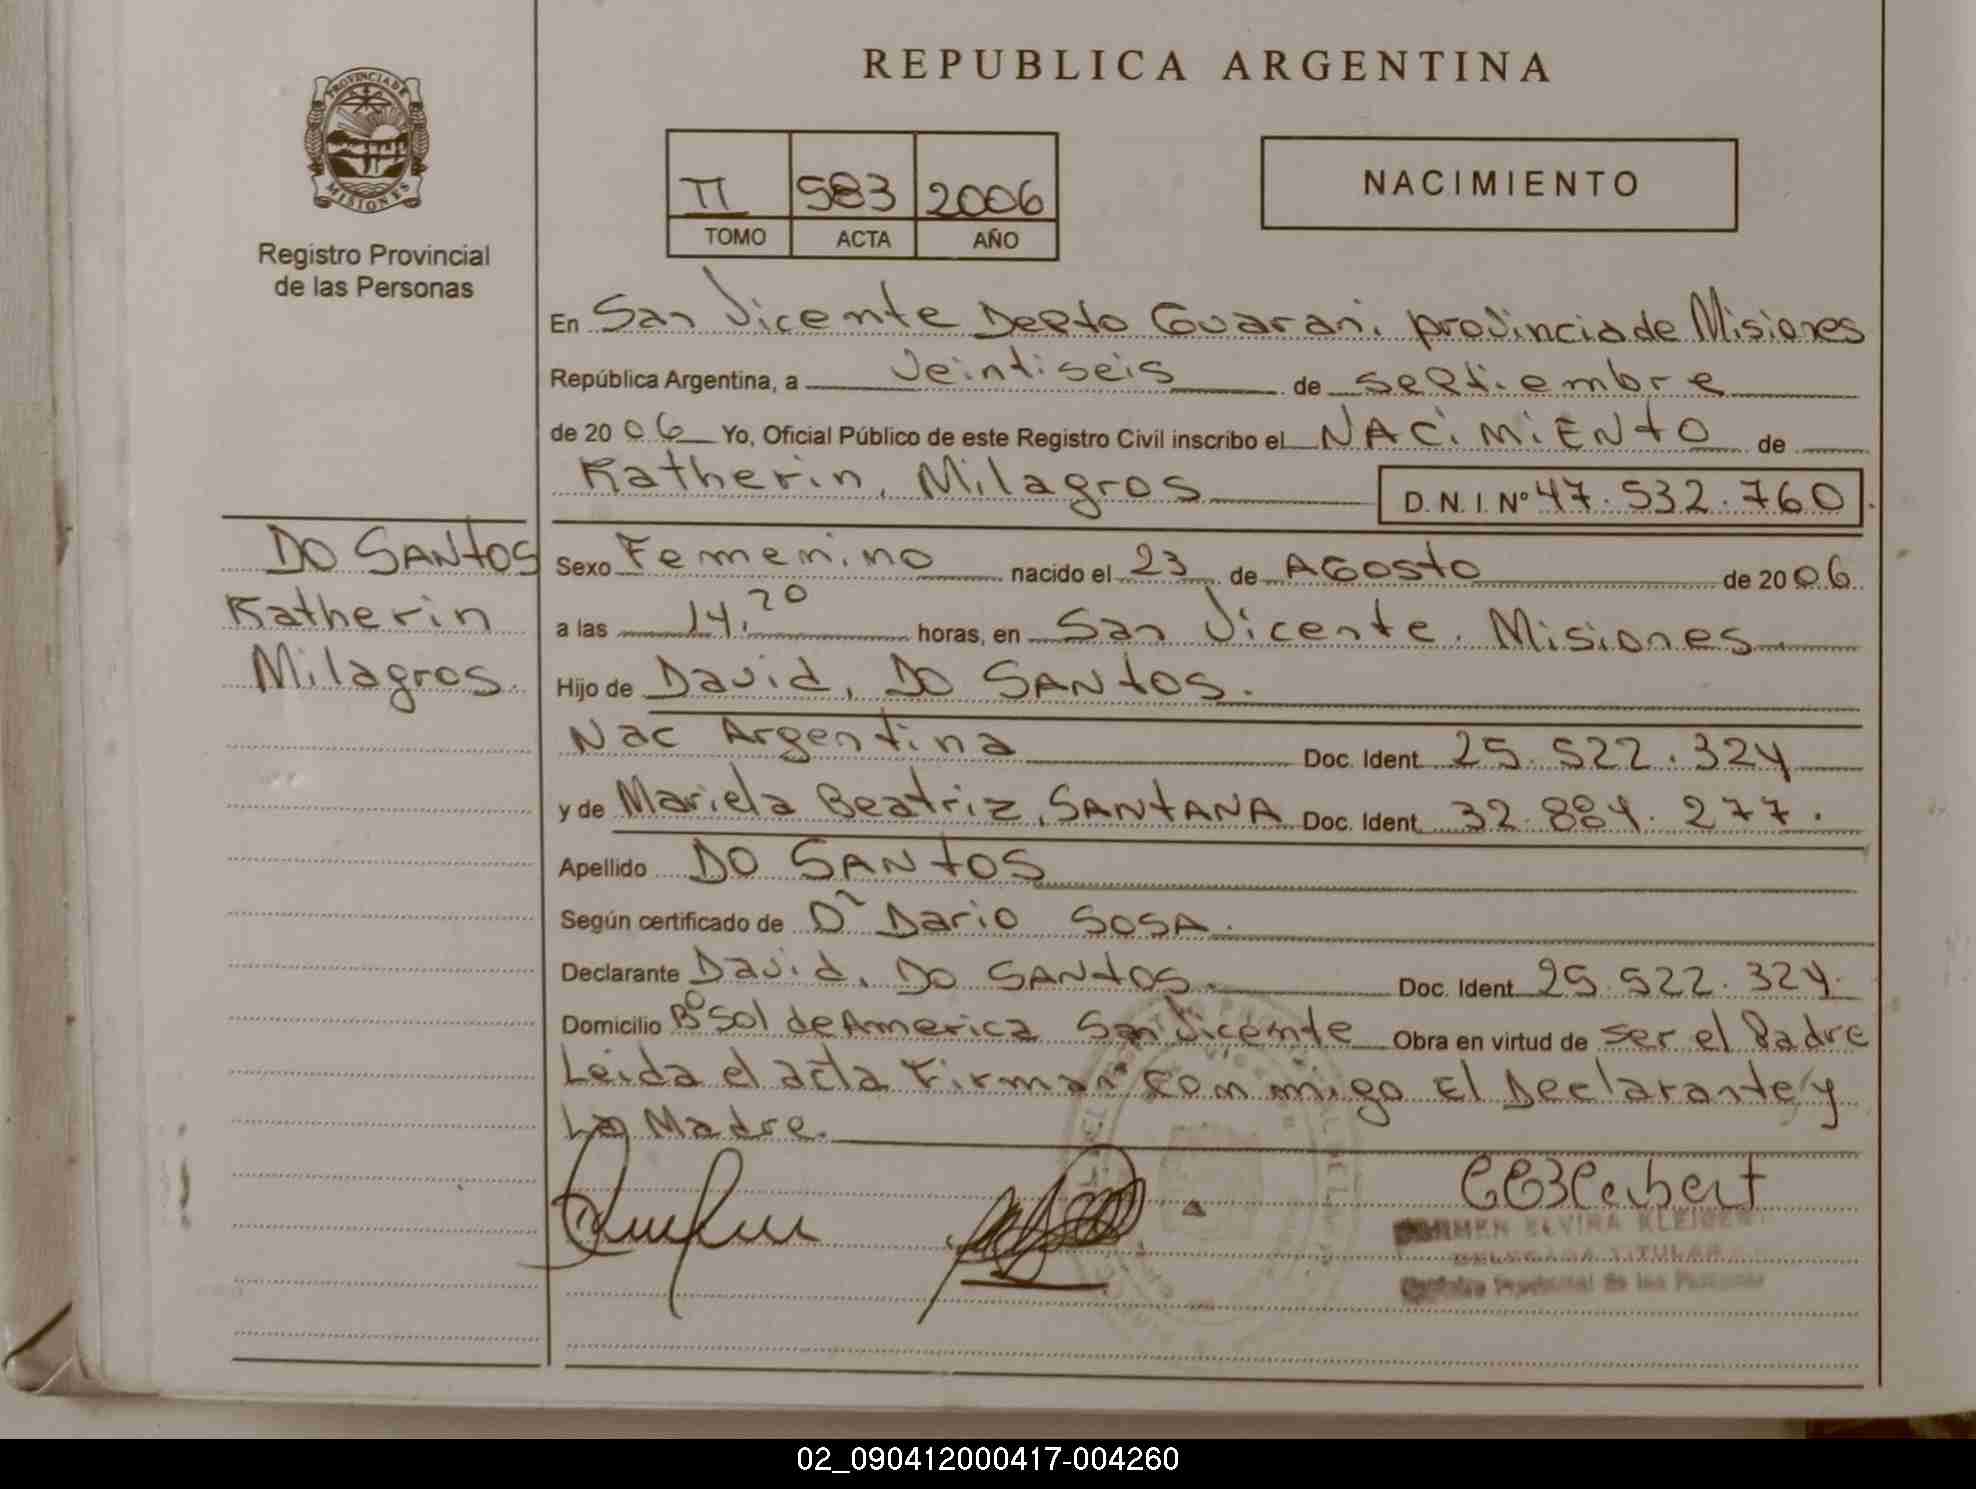 PROVINCIA DE
MISIONES
Registro Provincial
de las Personas
REPUBLICA ARGENTINA
II 583 2006
TOMO ACTA AÑO
NACIMIENTO
En San Vicente Depto Guarani provincia de Misiones
República Argentina, a Veintiseis de septiembre
de 2006 Yo, Oficial Público de este Registro Civil inscribo el NACIMIENTO de
Katherin, Milagros D. N. I. Nº 47.532.760
DO SANTOS
Katherin
Milagros.
Sexo Femenino nacido el 23 de AGOSTO de 2006.
a las 14.20 horas, en San Vicente. Misiones
Hijo de David, DO SANTOS.
Nac Argentina Doc. Ident. 25.522.324
y de Mariela Beatriz, SANTANA Doc. Ident. 32.884.277.
Apellido DO SANTOS
Según certificado de Dr Dario SOSA.
Declarante David, DO SANTOS. Doc. Ident. 25.522.324.
Domicilio Bº Sol de America San Vicente Obra en virtud de ser el Padre
Leida el acta Firman con migo El Declarante y
La Madre.
ELVIRA
DELEGADA TITULAR
Registro Provincial de las Personas
02_090412000417-004260